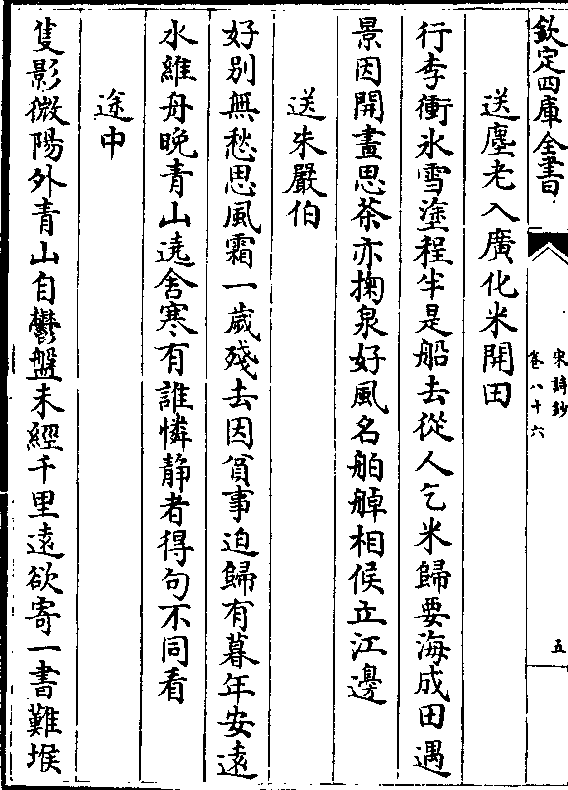 欽定四庫全書
宋詩鈔
卷八十六
五
送塵老入廣化米開田
行李衝氷雪塗程半是船去從人乞米歸要海成田遇
景因開畫思茶亦掬泉好風名舶𦪇相候立江邊
送朱嚴伯
好别無愁思風霜一歲殘去因貧事迫歸有暮年安遠
水維舟晚青山遶舍寒有誰憐静者得句不同看
途中
隻影微陽外青山自鬱盤未經千里遠欲寄一書難堠